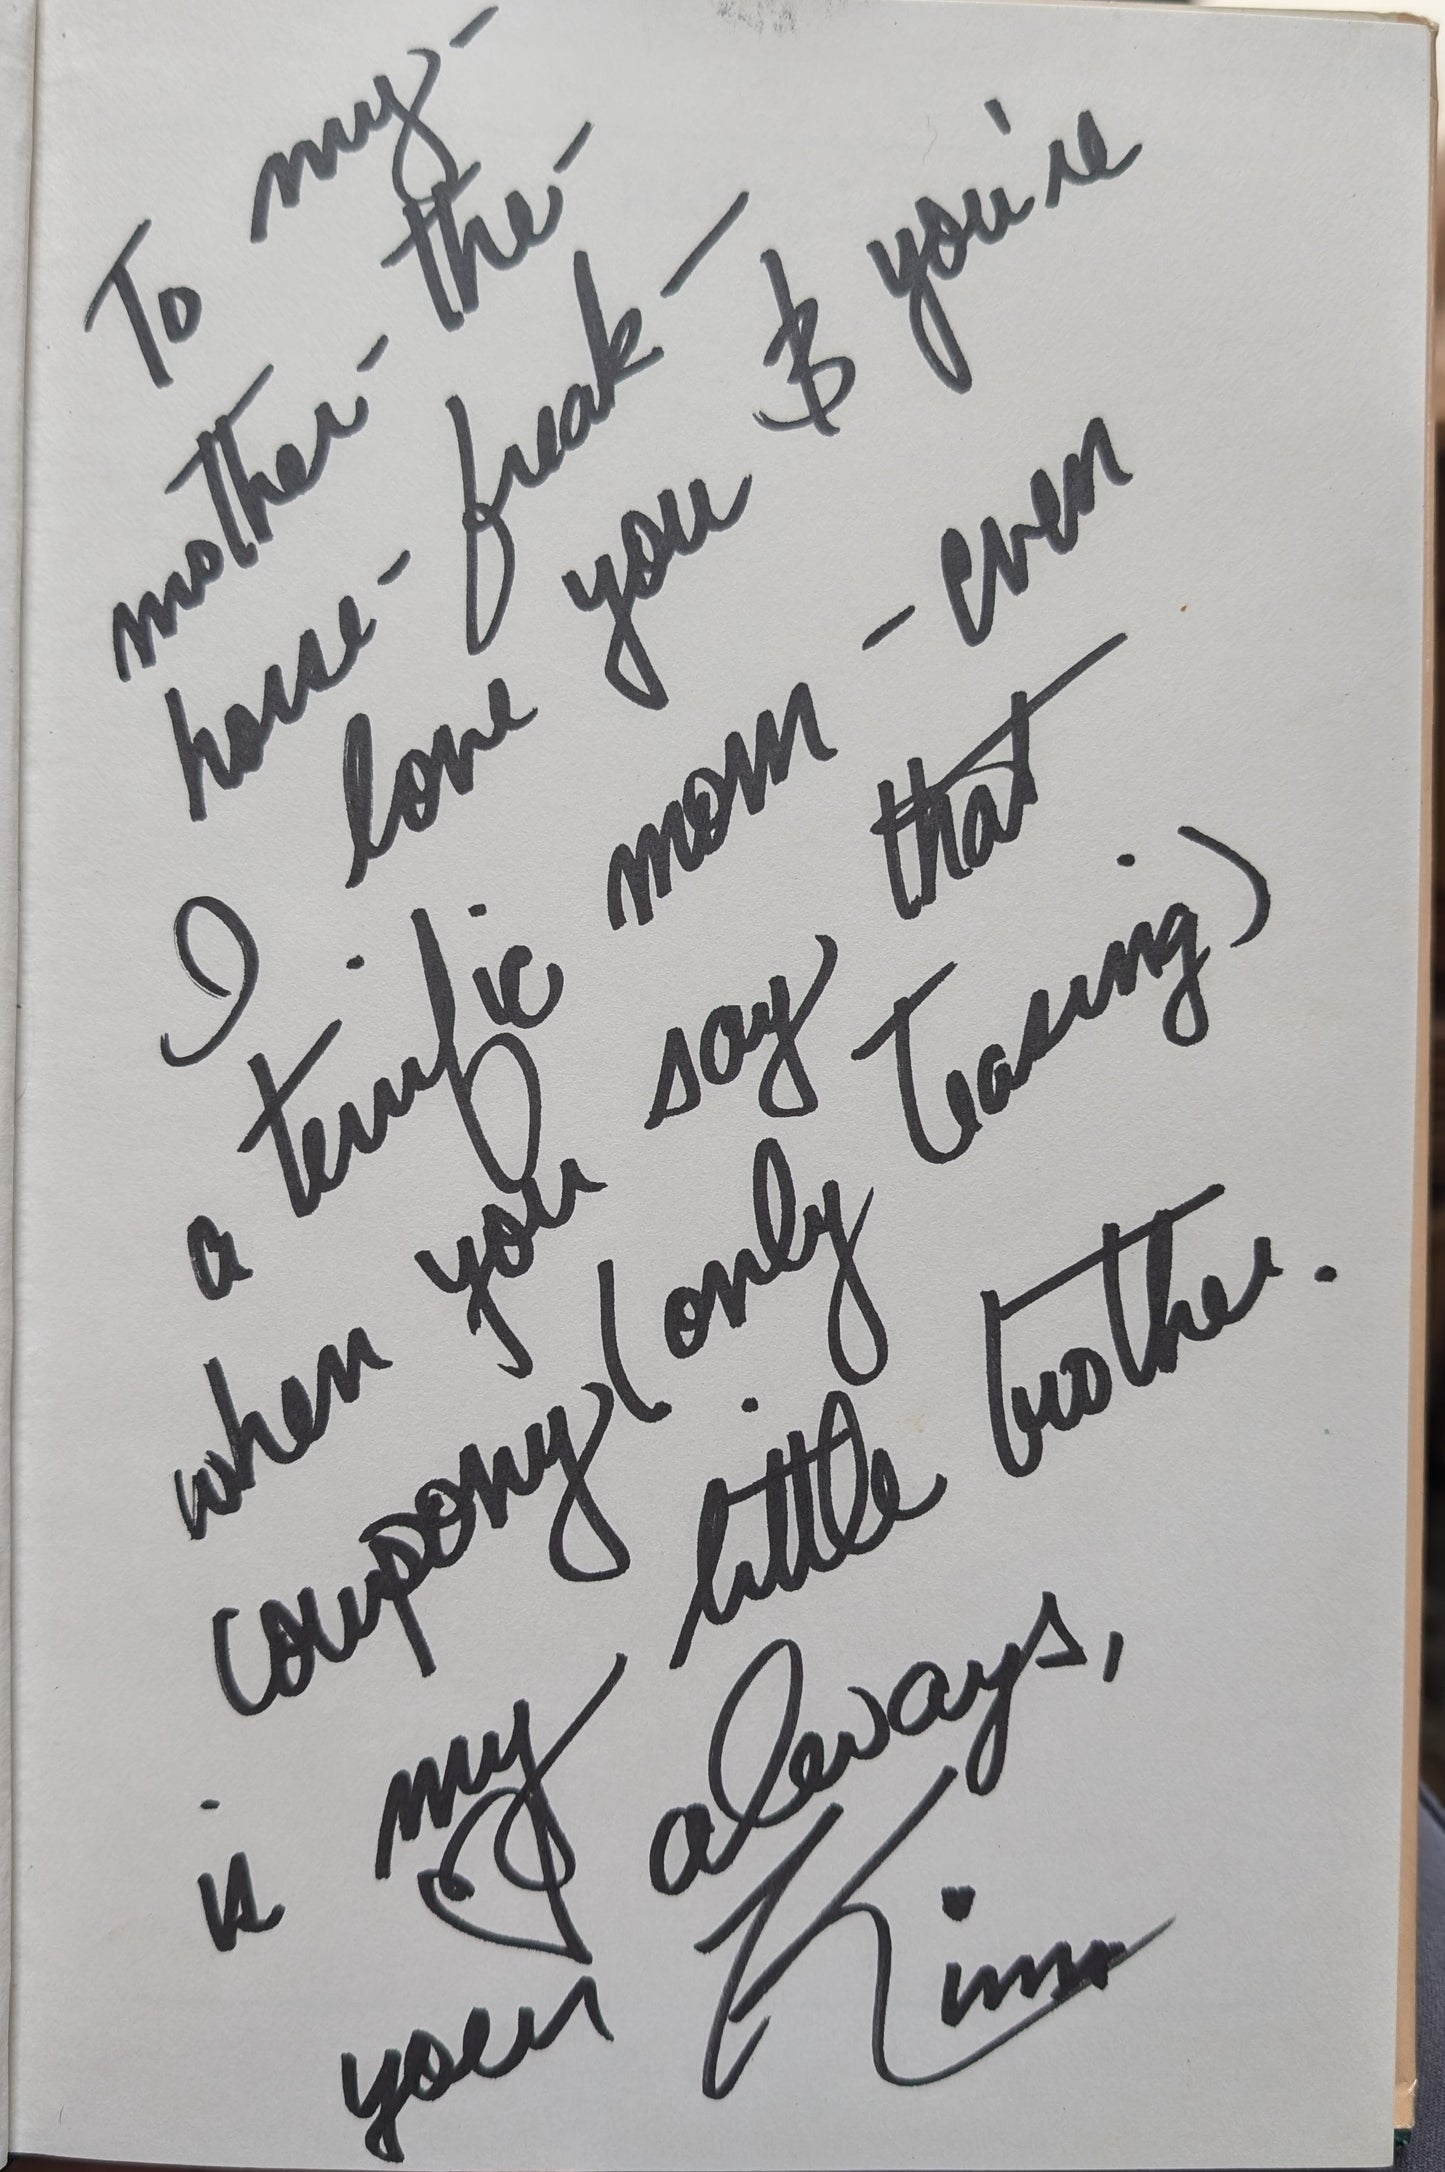 To my-
mother-the-
house-freak-
I love you & you're
a terrific mom - even
when you say that
Coupony (only teasing)
is my little brother.
your always,
Kim